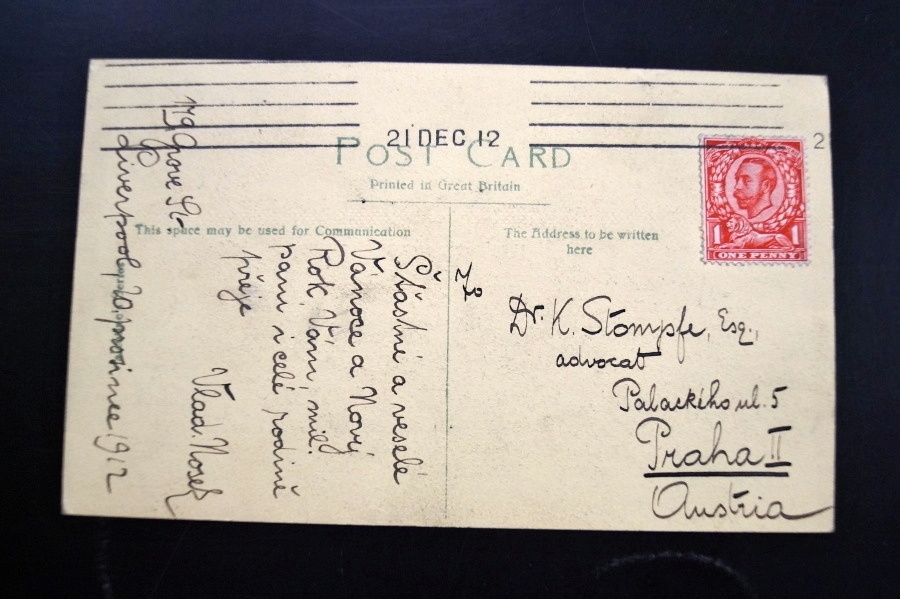 21 DEC 12
POST CARD
Printed in Great Britain
This space may be used for Communication
The Address to be written
here
ONE PENNY
1 1
Grove St.
Liverpool, 20 prosince 1912
Šťastné a veselé
Vánoce a Nový
Rok Vám, mil.
paní i celé rodině
přeje
Vlad. Nosek
To
Dr. K. Stompfe, Esq.,
advocat
Palackého ul. 5
Praha II
Austria
2